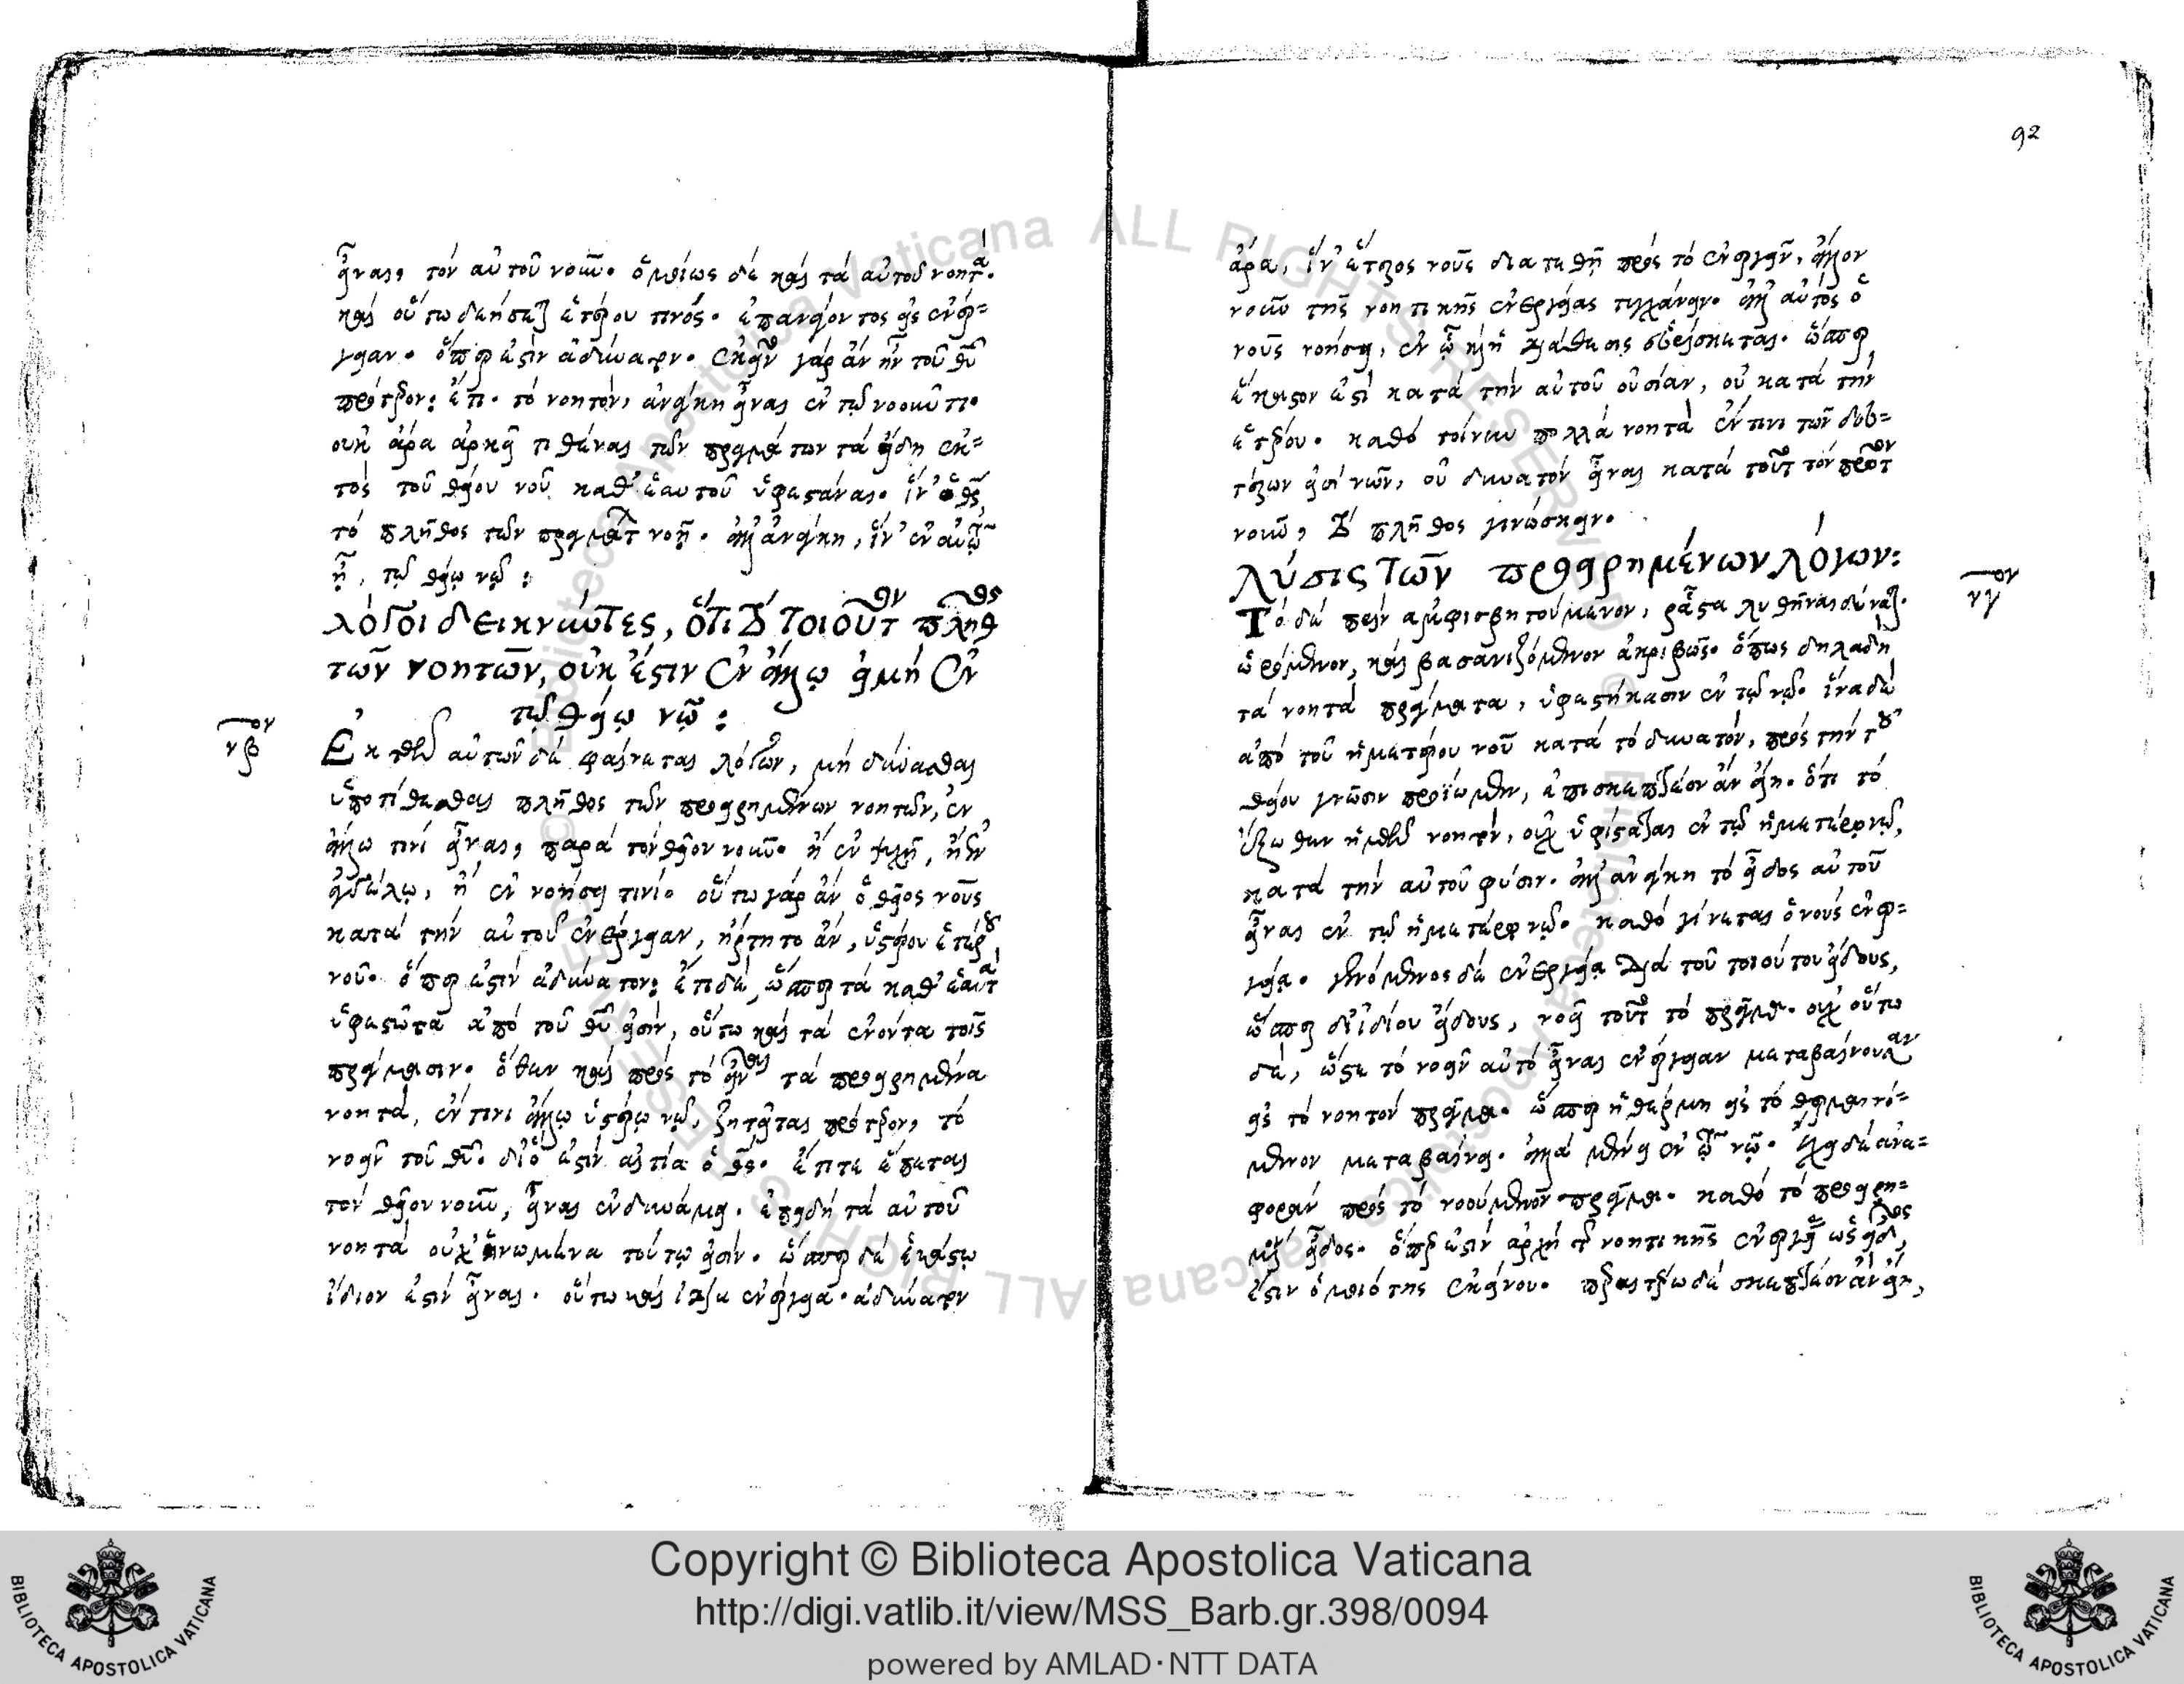 εἶναι, τὸν αὐτοῦ νοῦν. ὁμοίως δὲ καὶ τὰ αὐτοῦ νοητά.
καὶ οὕτω δεήσεται ἑτέρου τινός. ἐπανάγοντος εἰς ἐνέρ=
γειαν. ὅπερ ἐστὶν ἀδύνατον. ἐκεῖνο γὰρ ἂν ἦν τοῦ θεοῦ
πρότερον: ἔτι. τὸ νοητὸν, ἀνάγκη εἶναι ἐν τῷ νοοῦντι.
οὐκ ἄρα ἀρκεῖ τιθέναι τῶν πραγμάτων τὰ εἴδη ἐκ=
τὸς τοῦ θείου νοῦ καθ' ἑαυτοῦ ὑφεστάναι. ἵν' ὁ θεὸς
τὸ πλῆθος τῶν πραγμάτων νοῇ. ἀλλ' ἀνάγκη, ἵν' ἐν αὐτῷ
ᾖ, τῷ θείῳ νῷ:
λόγοι δεικνύντες, ὅτι τὸ τοιοῦτον πλῆθος
τῶν νοητῶν, οὐκ ἔστιν ἐν ἄλλῳ εἰ μὴ ἐν
τῷ θείῳ νῷ:
νβον
Ἐκ τῶν αὐτῶν δὲ φαίνεται λόγων, μὴ δύνασθαι
ὑποτίθεσθαι πλῆθος τῶν προειρημένων νοητῶν, ἐν
ἄλλῳ τινὶ εἶναι, παρὰ τὸν θεῖον νοῦν. ἢ ἐν ψυχῇ, ἢ ἐν
ἀγγέλῳ, ἢ ἐν νοήσει τινί. οὕτω γὰρ ἂν ὁ θεῖος νοῦς
κατὰ τὴν αὐτοῦ ἐνέργειαν, ἤρτητο ἂν, ὑστέρου ἑτέρου
νοῦ. ὅπερ ἐστὶν ἀδύνατον: ἔτι δὲ, ὥσπερ τὰ καθ' ἑαυτὰ
ὑφεστῶτα ἀπὸ τοῦ θεοῦ εἰσὶν, οὕτω καὶ τὰ ἐνόντα τοῖς
πράγμασιν. ὅθεν καὶ πρὸς τὸ εἶναι τὰ προειρημένα
νοητὰ, ἔν τινι ἄλλῳ ὑστέρῳ νῷ, ζητεῖται πρότερον, τὸ
νοεῖν τοῦ θεοῦ. δι' ὅ ἐστιν αἰτία ὁ θεός. ἔτι τε ἕπεται
τὸν θεῖον νοῦν, εἶναι ἐν δυνάμει. ἐπειδὴ τὰ αὐτοῦ
νοητὰ οὐχ' ἡνωμένα τούτῳ εἰσίν. ὥσπερ δὲ ἑκάστῳ
ἴδιόν ἐστιν εἶναι. οὕτω καὶ ἰδία ἐνέργεια. ἀδύνατον
92
ἄρα, ἵν' ἕτερος νοῦς διατεθῇ πρὸς τὸ ἐνεργεῖν, ἄλλον
νοῦν τῆς νοητικῆς ἐνεργείας τυγχάνειν. ἀλλ' αὐτὸς ὁ
νοῦς νοήσει, ἐν ᾧ
ἕκαστόν ἐστι κατὰ τὴν αὐτοῦ οὐσίαν, οὐ κατὰ τὴν
ἑτέρου. καθὸ τοίνυν πολλὰ νοητὰ ἔν τινι τῶν δευ=
τέρων εἰσὶ νῶν, οὐ δυνατὸν εἶναι κατὰ τοῦτο τὸν πρῶτον
νοῦν, τὸ πλῆθος γινώσκειν.
λύσις τῶν προειρημένων λόγων:
νγον
Τὸ δὲ πρὶν ἀμφισβητούμενον, ῥᾷστα λυθῆναι δύναται.
ὡρόμενον, καὶ βασανιζόμενον ἀκριβῶς. ὅπως δηλαδὴ
τὰ νοητὰ πράγματα, ὑφεστήκασιν ἐν τῷ νῷ. ἵνα δὲ
ἀπὸ τοῦ ἡμετέρου νοῦ κατὰ τὸ δυνατὸν, πρὸς τὴν τοῦ
θείου γνῶσιν προΐωμεν, ἐπισκεπτέον ἂν εἴη. ὅτι τὸ
ἔξωθεν ἡμῶν νοητὸν, οὐχ ὑφίσταται ἐν τῷ ἡμετέρῳ νῷ,
κατὰ τὴν αὐτοῦ φύσιν. ἀλλ' ἀνάγκη τὸ εἶδος αὐτοῦ
εἶναι ἐν τῷ ἡμετέρῳ νῷ. καθὸ γίνεται ὁ νοῦς ἐνερ=
γείᾳ. γενόμενος δὲ ἐνεργείᾳ διὰ τοῦ τοιούτου εἴδους,
ὥσπερ δι' ἰδίου εἴδους, νοεῖ τοῦτο τὸ πρᾶγμα. οὐχ οὕτω
δὲ, ὥστε τὸ νοεῖν αὐτὸ εἶναι ἐνέργειαν μεταβαίνουσαν
εἰς τὸ νοητὸν πρᾶγμα. ὥσπερ ἡ θέρμη εἰς τὸ θερμαινό=
μενον μεταβαίνει. ἀλλὰ μένει ἐν τῷ νῷ. ἔχει δὲ ἀνα=
φορὰν πρὸς τὸ νοούμενον πρᾶγμα. καθὸ τὸ προειρη=
μένον εἶδος. ὅπερ ἐστὶν ἀρχὴ τῆς νοητικῆς ἐνεργείας ὡς εἶδος,
ἔστιν ὁμοιότης ἐκείνου. περαιτέρω δὲ σκεπτέον ἂν εἴη,
Copyright © Biblioteca Apostolica Vaticana
http://digi.vatlib.it/view/MSS_Barb.gr.398/0094
powered by AMLAD·NTT DATA